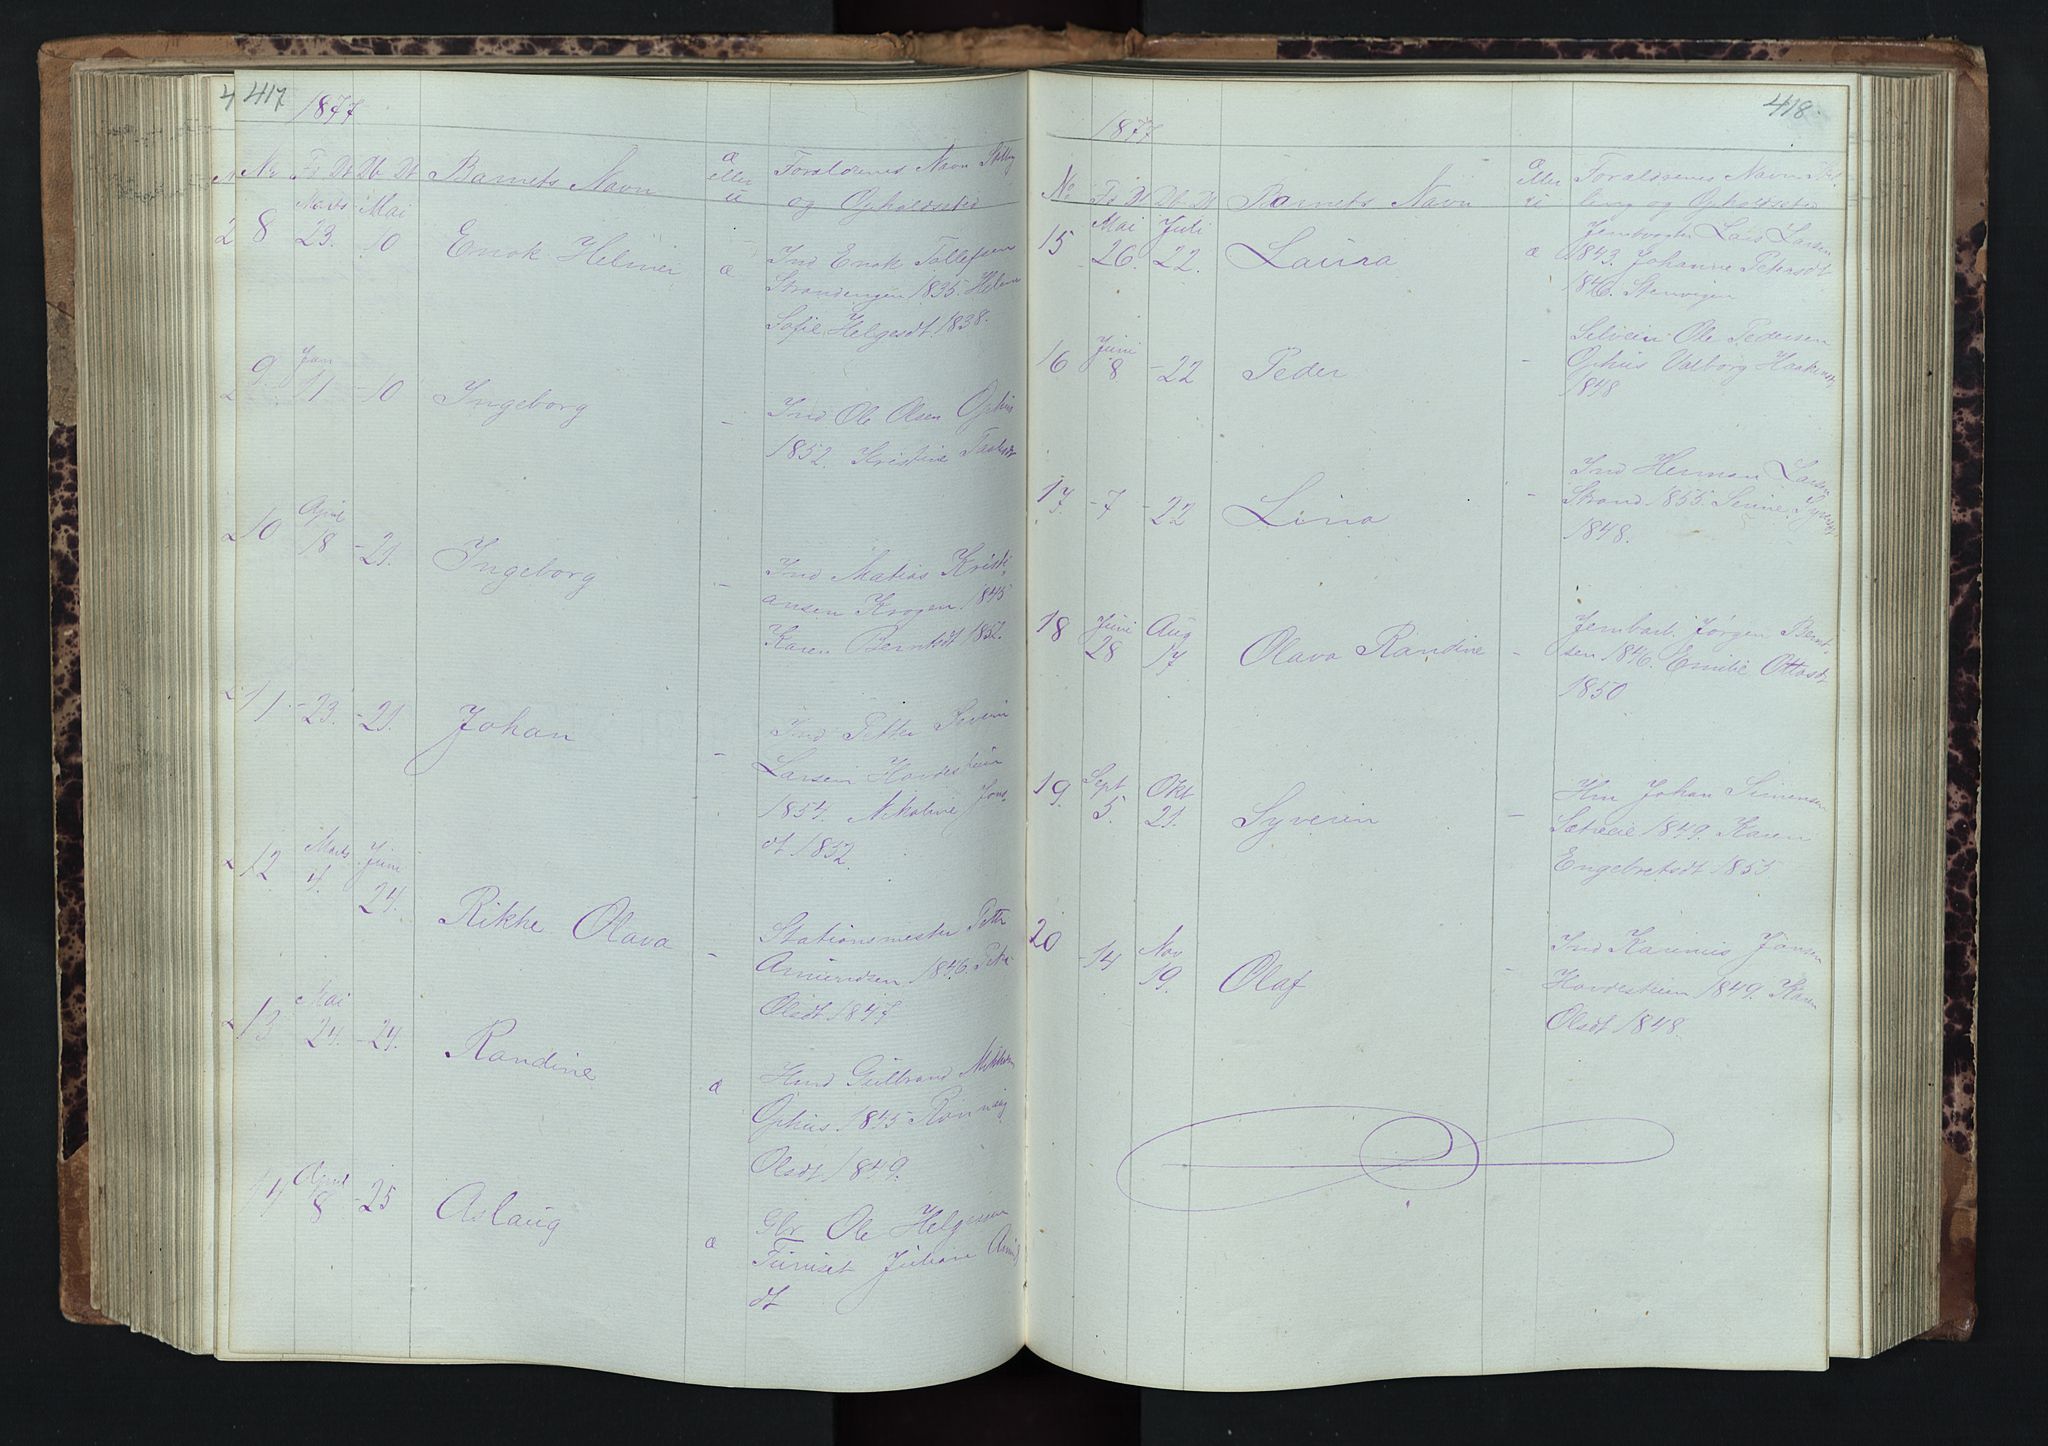 417
1877
Nr Fd Dt Db Dt Barnets Navn æ eller u Forældrenes Navn Stilling
og Opholdssted
8 Marts 23. Mai 10 Enok Helmer æ Ind Enok Tollefsen
Strandengen 1835. Helene
Sofie Helgesdt 1838.
9. Jan 11 -10 Ingeborg - Ind Ole Olsen Ophus
1852. Kristine
10 April 18 -21. Ingeborg - Ind Matias Kristi-
ansen Krogen 1845
Karen Berntsdt 1852.
11. -23. -21. Johan - Ind Petter Severin
Larsen Hovdestuen
1854. Nikoline Jons-
dt 1852.
12 Marts 4. Juni 24. Rikke Olava - Stationsmester Petter
Amundsen 1846. Petra
Olsdt 1847
13 Mai 24. -24. Randine æ Hmd Gulbrand Mikkelsen
Ophus 1845 Rønnaug
Olsdt 1849.
14 April 8 -25 Aslaug æ Gbr Ole Helgesen
Turiset Juliane
dt
418.
1877
No Fd Dt Db Dt Barnets Navn æ eller u Forældrenes Navn Stil-
ling og Opholdssted
15 Mai 26. Juli 22. Laura æ Jernbvogter Lars Larsen
1843. Johanne Petersdt
1846. Stenvigen
16 Juni 8 -22 Peder - Selveier Ole Pedersen
Ophus Valborg Haakensdt
1848
17. -7 -22 Lina - Ind Herman Larsen
Strand 1855.
1848.
18 Juni 28 Aug 17 Olava Randine - Jernbarb. Jørgen Bernt-
sen 1846. Emilie Ottosdt
1850
19. Sept 5. Okt 21. Syverin - Hm Johan Simensen
Sætreeie 1849. Karen
Engebretsdt 1855
20 -14 Nov 19. Olaf - Ind Karinius Jonsen
Hovdestuen 1849. Karen
Olsdt 1848.